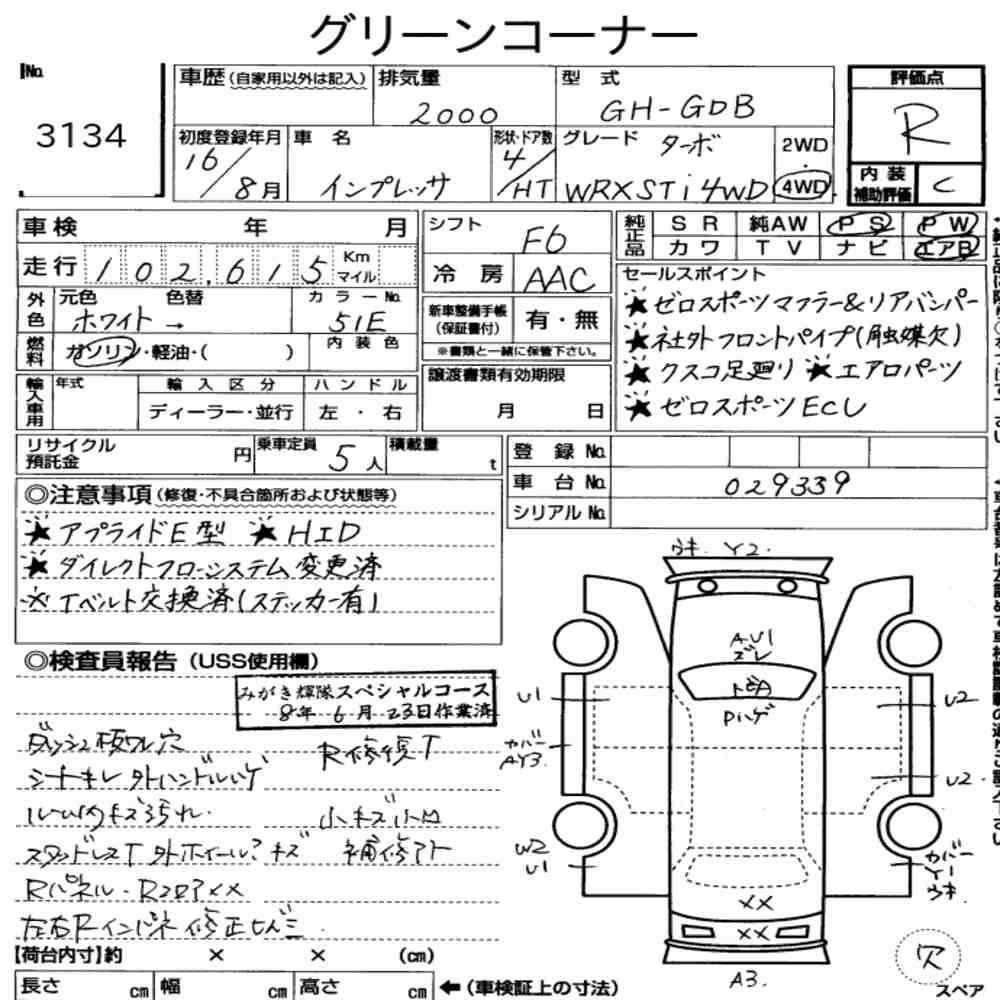 グリーンコーナー
No.
3134
車歴(自家用以外は記入)
排気量
2000
型 式
GH-GDB
評価点
R
内装
補助評価
C
初度登録年月
16/8月
車 名
インプレッサ
形状・ドア数
4/HT
グレード
ターボ
WRXSTi4WD
2WD
・
4WD
車検 年 月
シフト
F6
純正品
SR 純AW PS PW
カワ TV ナビ エアB
走行 102,615 Km マイル
冷房
AAC
セールスポイント
★ゼロスポーツマフラー&リアバンパー
★社外フロントパイプ(触媒欠)
★クスコ足廻り ★エアロパーツ
★ゼロスポーツECU
外色
元色 色替
ホワイト→
カラーNo.
51E
新車整備手帳
(保証書付)
有・無
※書類と一緒に保管下さい。
燃料
ガソリン・軽油・( )
内装色
輸入車用
年式
輸入区分
ディーラー・並行
ハンドル
左・右
譲渡書類有効期限
月 日
リサイクル
預託金
円
乗車定員
5人
積載量
t
登録No.
車台No.
029339
シリアルNo.
◎注意事項(修復・不具合箇所および状態等)
★アプライドE型 ★HID
★ダイレクトフローシステム変更済
※Tベルト交換済(ステッカー有)
◎検査員報告(USS使用欄)
みがき輝隊スペシャルコース
8年6月23日作業済
ダッシュ板ワレ穴
R修復T
シートキレ 外ハンドルハゲ
ルーム内キズ汚れ
小キズ小凹
スタッドレスT 外ホイール?キズ
補修アト
Rパネル・RフロアXX
【荷台内寸】約 × × (cm)
長さ cm 幅 cm 高さ cm ←(車検証上の寸法)
ウキ Y2
AU1
ズレ
トビA
Pハゲ
U1
U2
カバー
AY3
U2
W2
U1
カバー
Y1
ウキ
XX
XX
A3
スペア